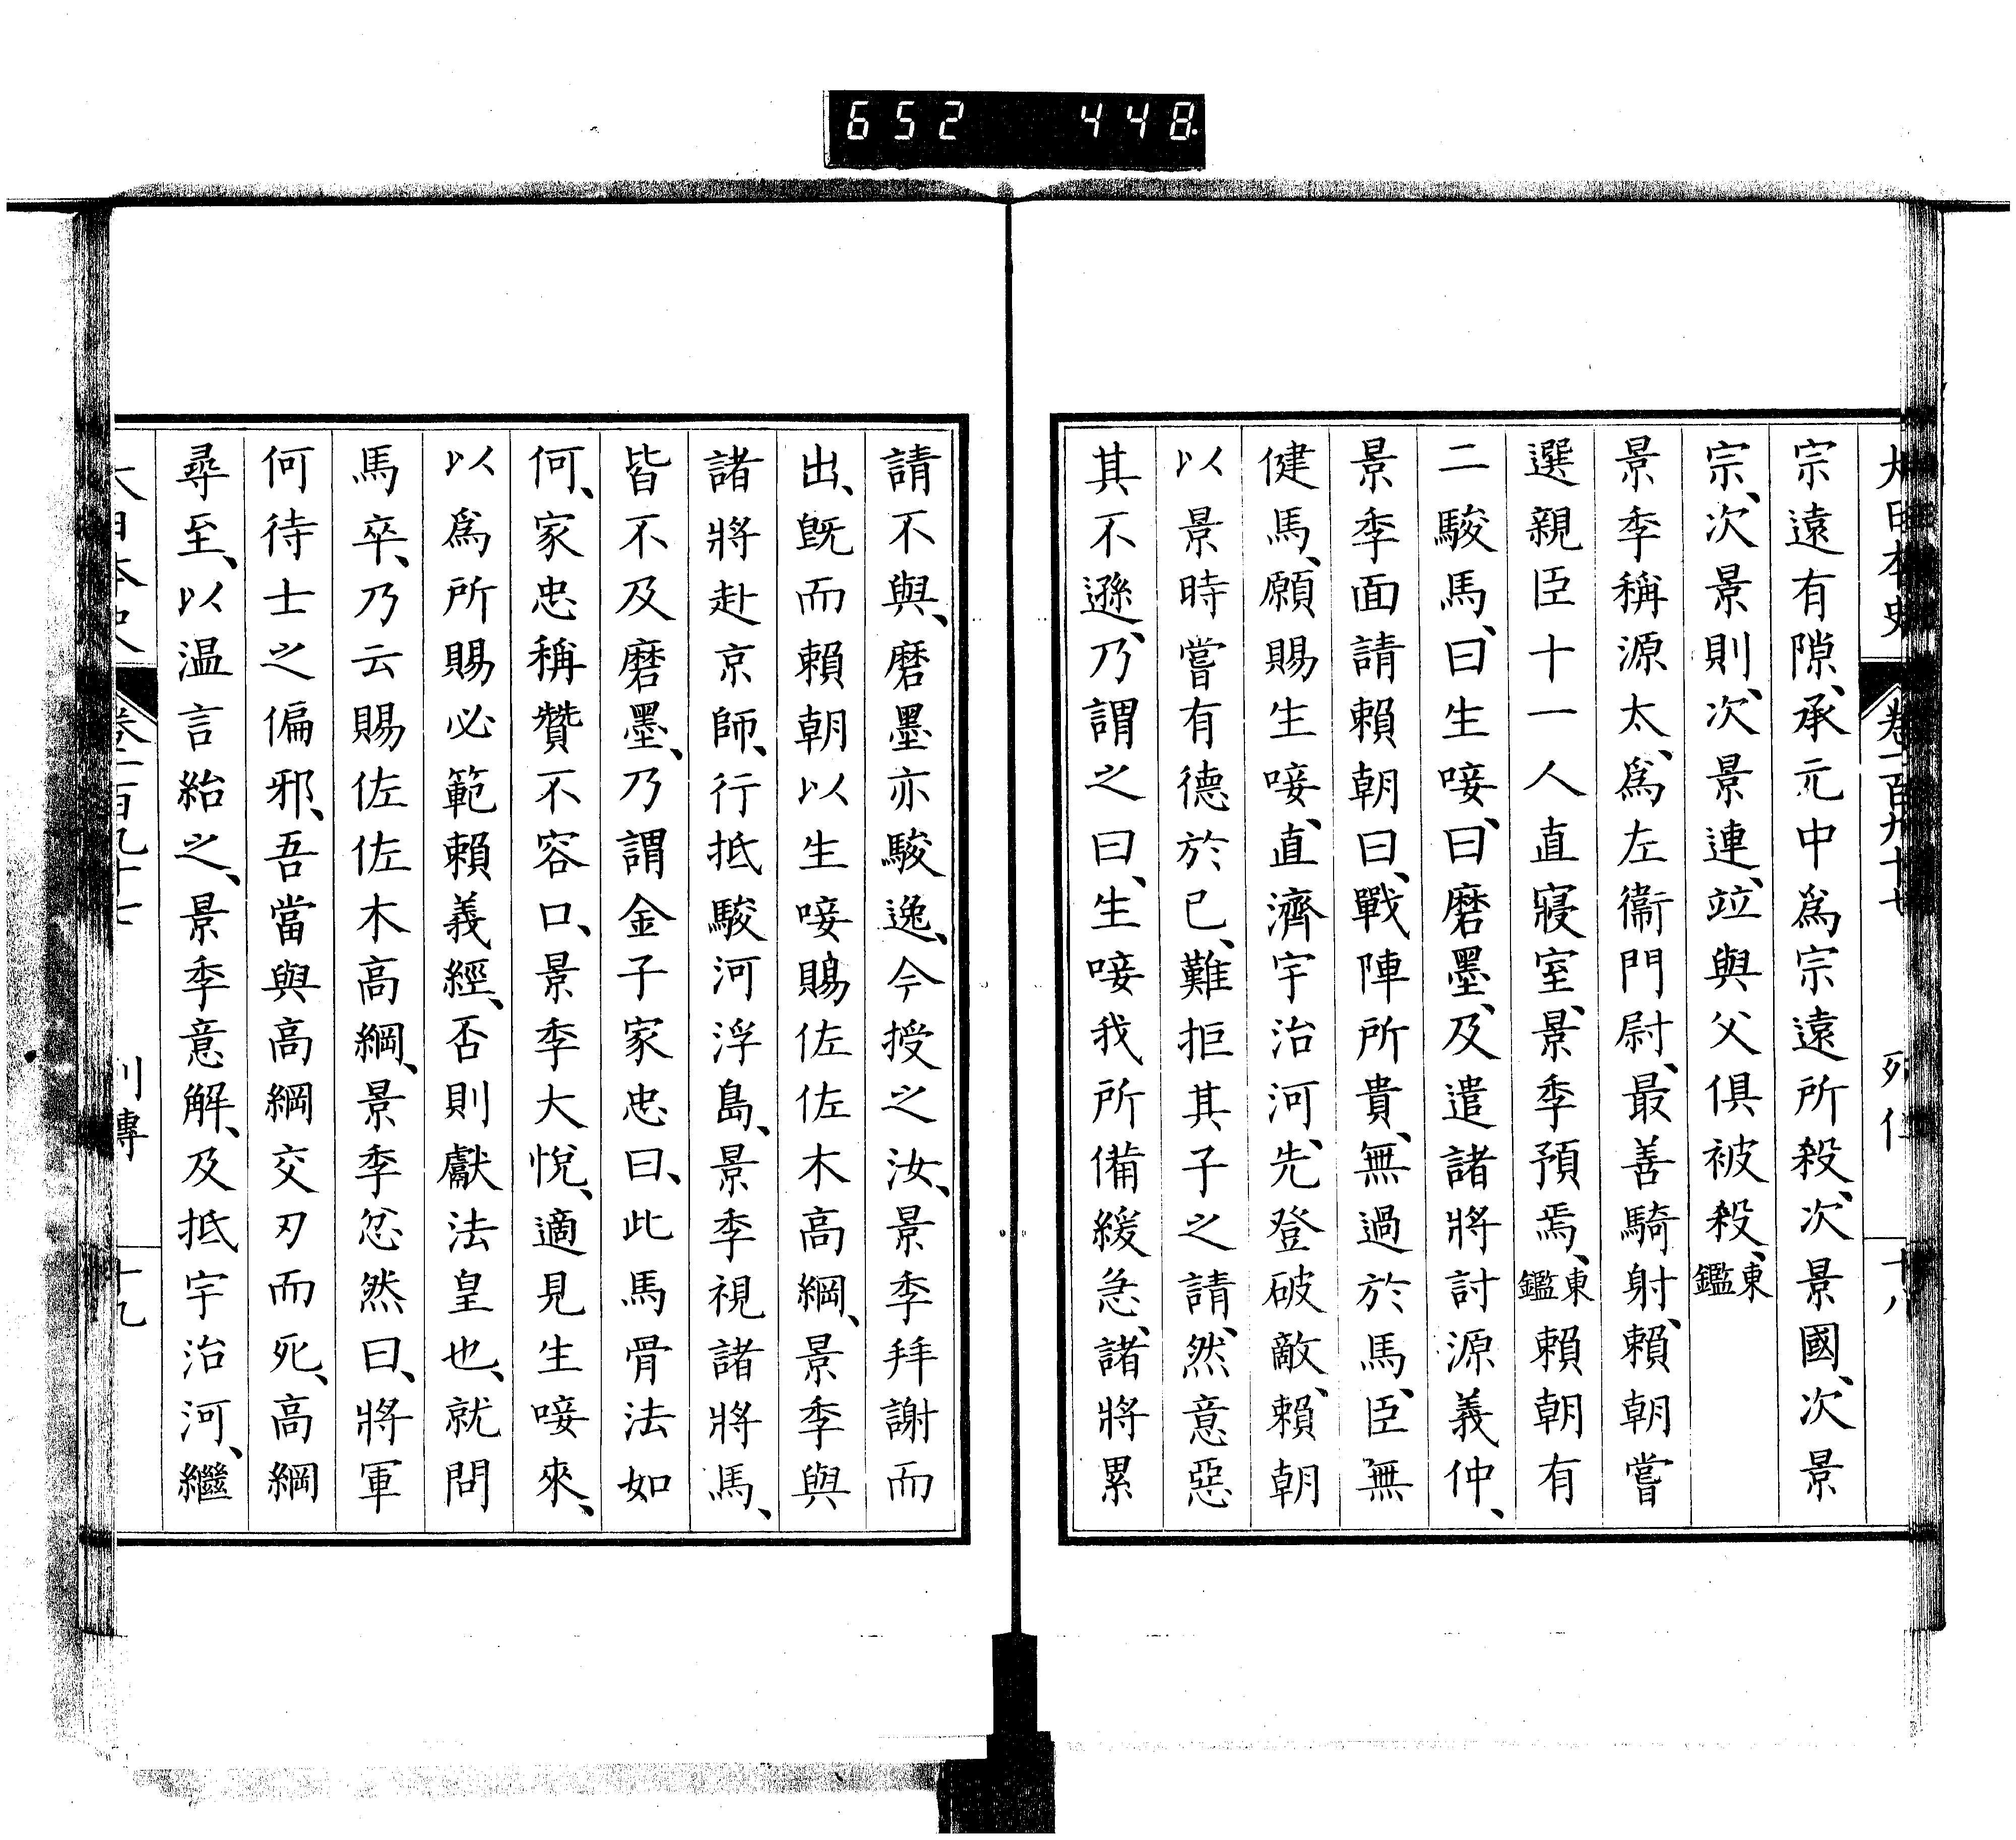 652 448
大日本史 卷一百九十七 列傳 十八
宗遠有隙、承元中爲宗遠所殺、次景國、次景
宗、次景則、次景連、竝與父俱被殺、東鑑
景季稱源太、爲左衞門尉、最善騎射、賴朝嘗
選親臣十一人直寢室、景季預焉、東鑑賴朝有
二駿馬、曰生唼、曰磨墨、及遣諸將討源義仲、
景季面請賴朝曰、戰陣所貴、無過於馬、臣無
健馬、願賜生唼、直濟宇治河、先登破敵、賴朝
以景時嘗有德於己、難拒其子之請、然意惡
其不遜、乃謂之曰、生唼我所備緩急、諸將累
請不與、磨墨亦駿逸、今授之汝、景季拜謝而
出、旣而賴朝以生唼賜佐佐木高綱、景季與
諸將赴京師、行抵駿河浮島、景季視諸將馬、
皆不及磨墨、乃謂金子家忠曰、此馬骨法如
何、家忠稱贊不容口、景季大悅、適見生唼來、
以爲所賜必範賴義經、否則獻法皇也、就問
馬卒、乃云賜佐佐木高綱、景季忿然曰、將軍
何待士之偏邪、吾當與高綱交刃而死、高綱
尋至、以温言紿之、景季意解、及抵宇治河、繼
大日本史 卷一百九十七 列傳 十九